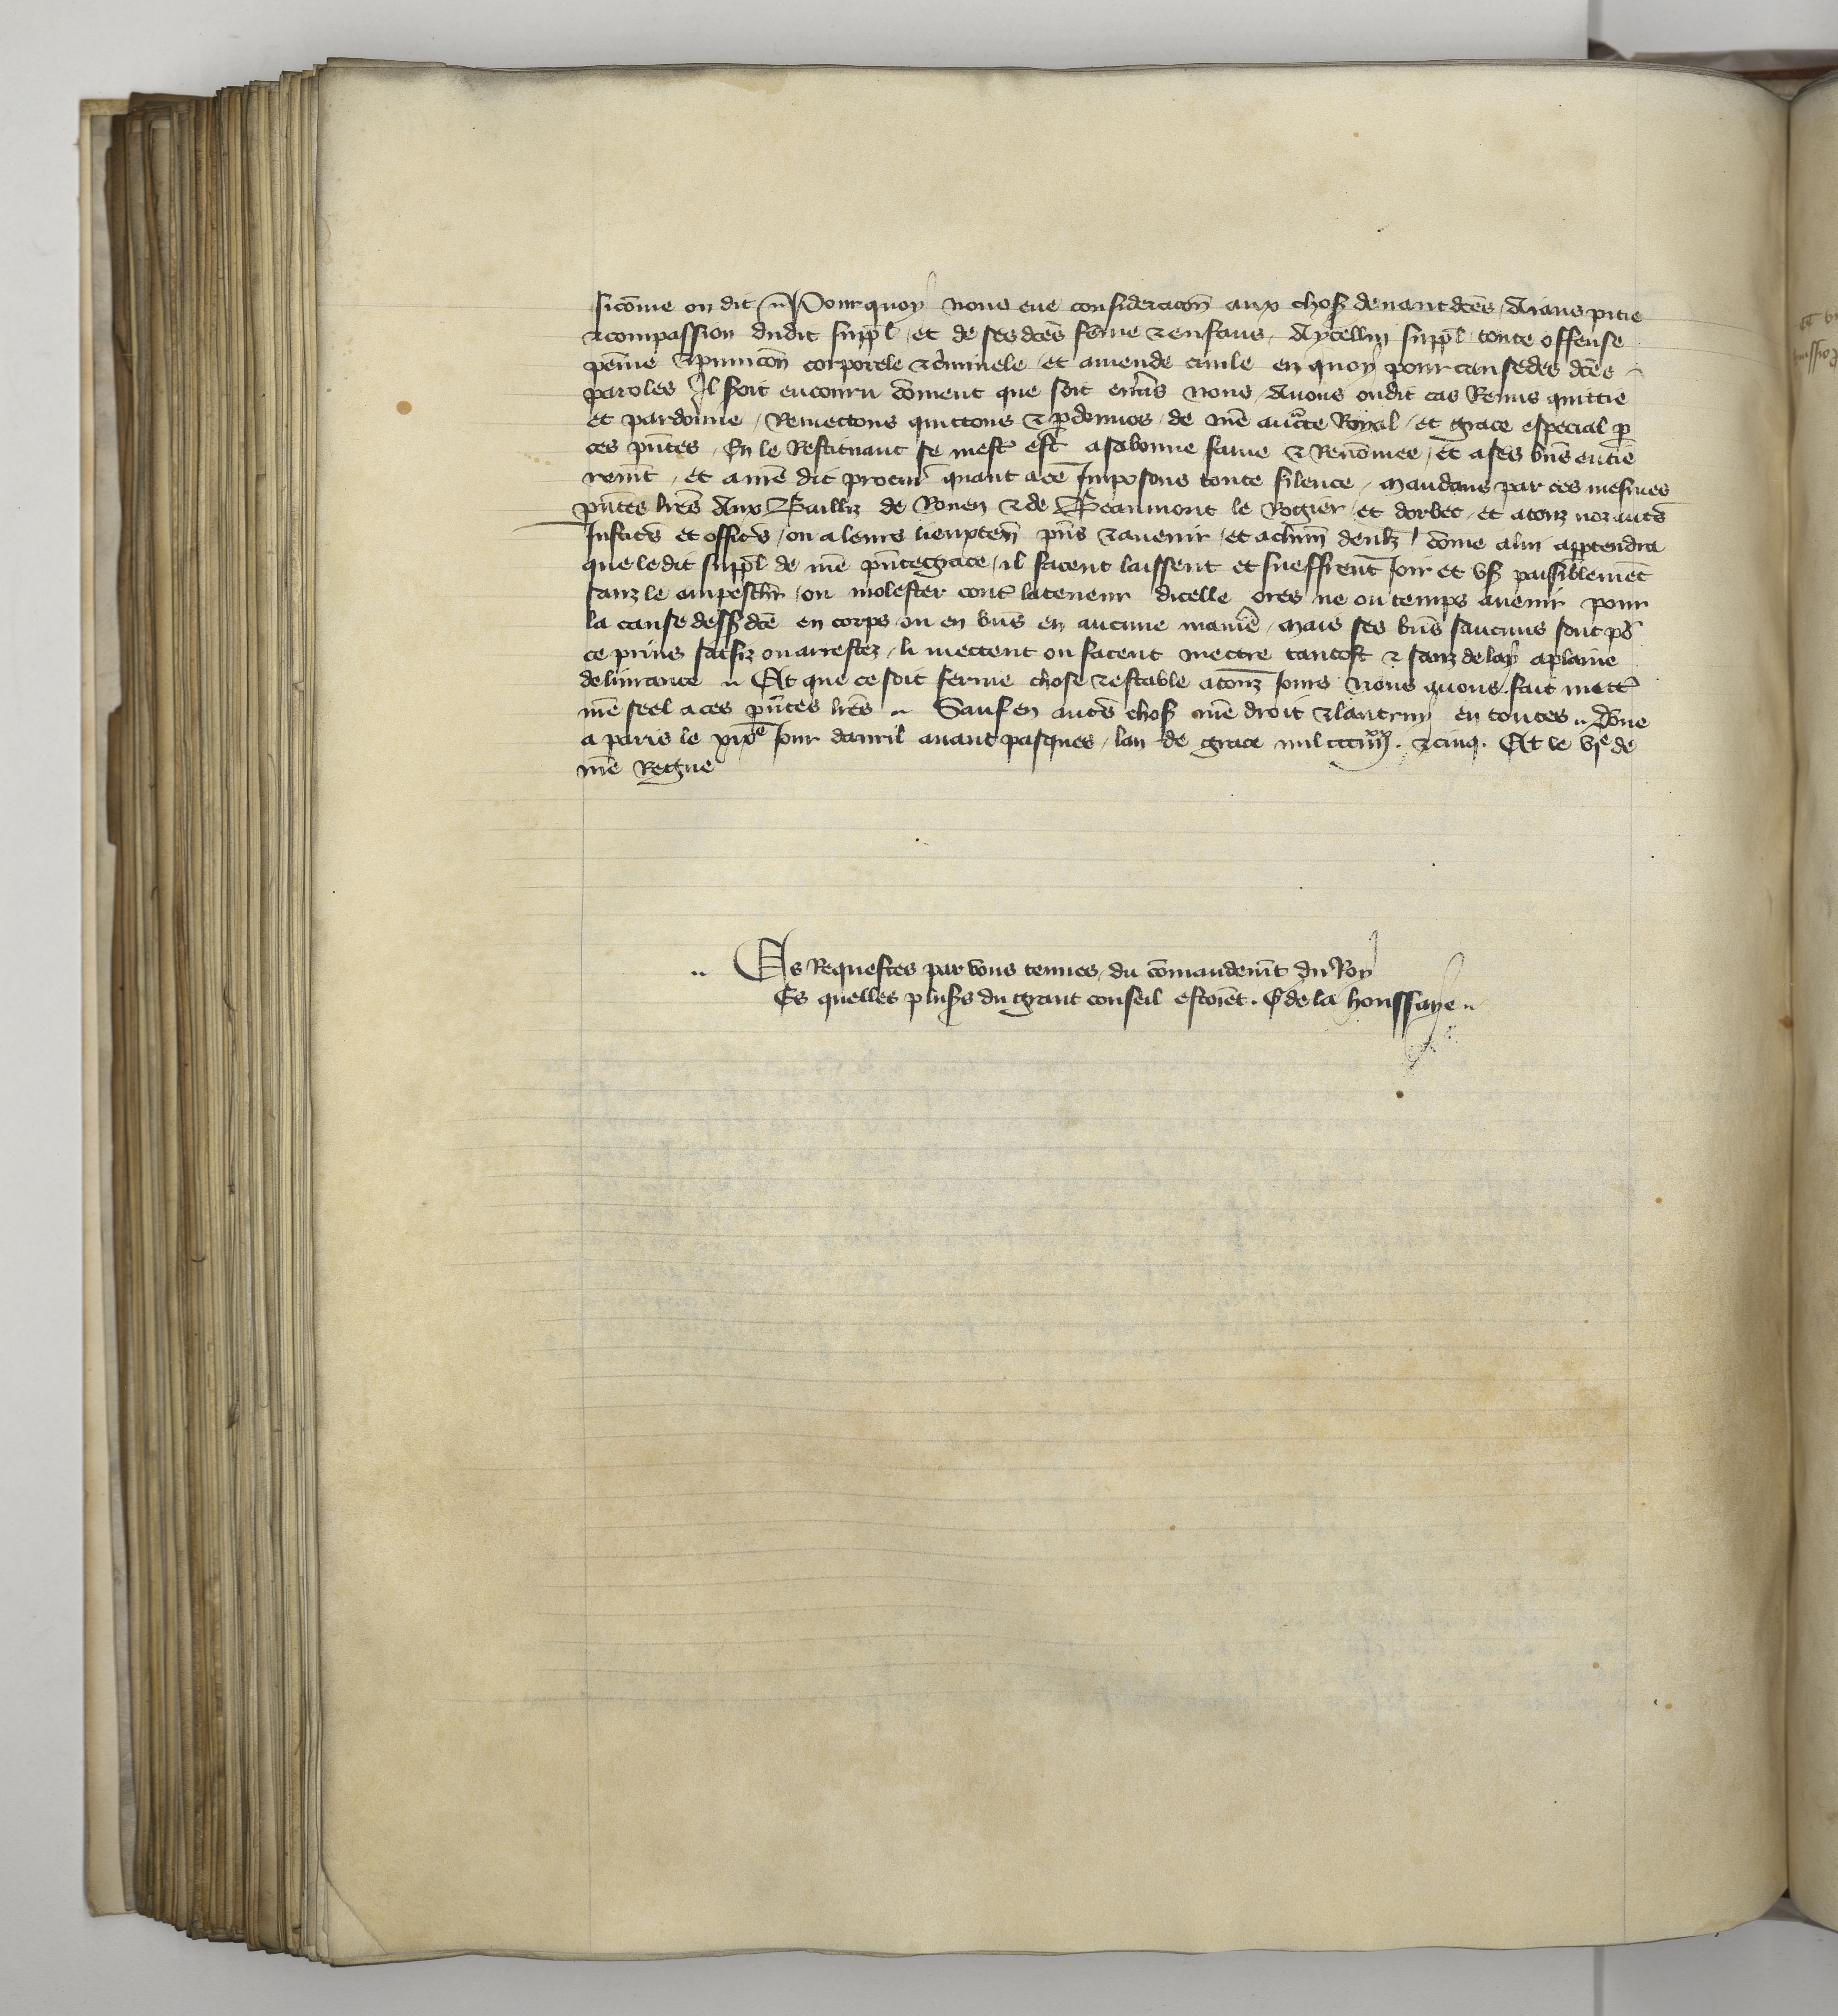 sicōme on dit .. Pourquoy nous eue consideracōn aux chos̄ deuantdc̄es / Aians pitie
⁊ compassion dudit suppl̄ / et de ses dc̄es fēme ⁊ enfans / A ycellui suppl̄ toute offense
peīne ⁊ punicōn corporele ⁊ c̓minele / et amende ciuile en quoy pour cause des dc̄es
paroles Il soit encouru cōment que soit en̓us nous / Auons oudit cas Remis quittie
et pardonne / Remettons quittons ⁊ ꝑdonnos / de nr̄e auc̄te Royal / et grace especial ꝑ
ces pn̄tes / En le Restituant se mest̓ est a sa bonne fame ⁊ Renōmee / et a ses bn̄s entie
remt̄ / et a nr̄e dit procur̄ quant a ce Imposons toute silence / Mandans par ces mesmes
pn̄tes lr̄es Aux Bailliz de Rouen ⁊ de Beaumont le Rogier / et dorbec / et a touz noz aut̄s
Justic̄s et offic̄s / ou a leurs lieuxten̄ pn̄s ⁊ auenir / et a chūn deulx / cōme a lui apptendra
que le dit suppl̄ de nr̄e pn̄te grace / il facent laissent et sueffrent̄ Joir et vs̄ paisiblemēt
sanz le empesch̄r / ou molester cont̓ la teneur dicelle ores ne ou temps auenir pour
la cause dess̄ dc̄e en corps ou en bn̄s en aucune manie̓ / Mais ses bn̄s saucuns sont po̓
ce prins saisiz ou arrestez / li mettent ou facent mectre tantost ⁊ sanz delay a plaine
deliurance .. Et que ce soit ferme chose ⁊ estable a touz Jours Nous auons fait mett̓
nr̄e seel a ces pn̄tes lr̄es .. Sauf en aut̄s chos̄ nr̄e droit ⁊ lautruy en toutes .. Dōne
a paris le xixe Jour dauril auant pasques / lan de grace mil ccc iiijxx. ⁊ cinq. Et le vje de
nr̄e Regne
.. Es Requestes par vous tenues / du cōmandemt̄ du Roy
Es quelles plus̄s du grant conseil estoiēt. G de la houssaye ..